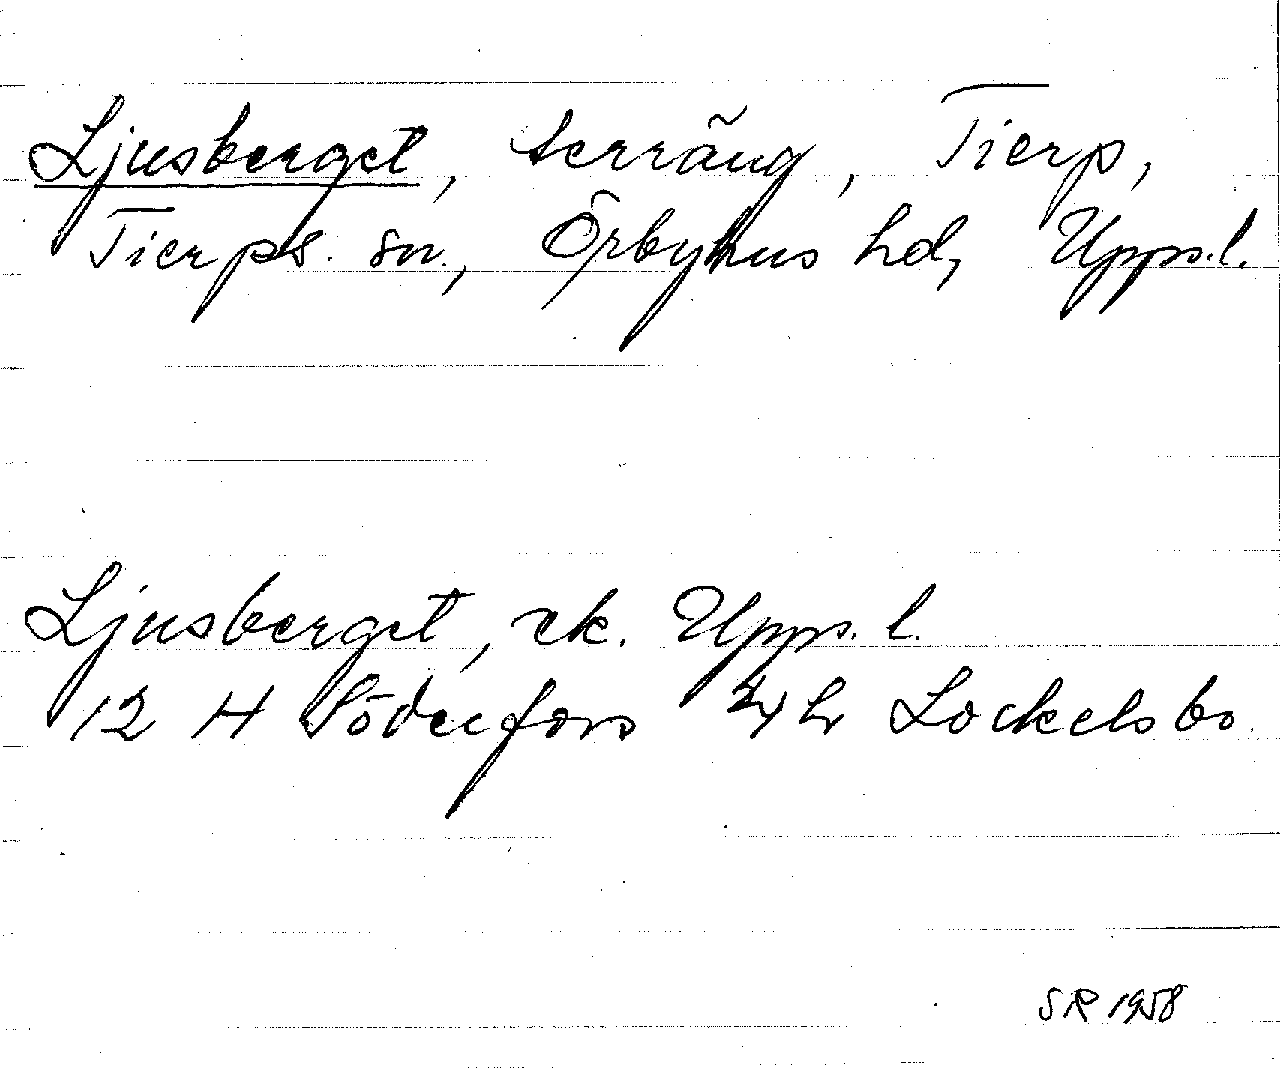 Ljusberget, terräng, Tierp,
Tierps sn., Örbyhus hd, Upps.l.
Ljusberget, ek. Upps. l.
12 H Söderfors Lockelsbo.
SR 1958